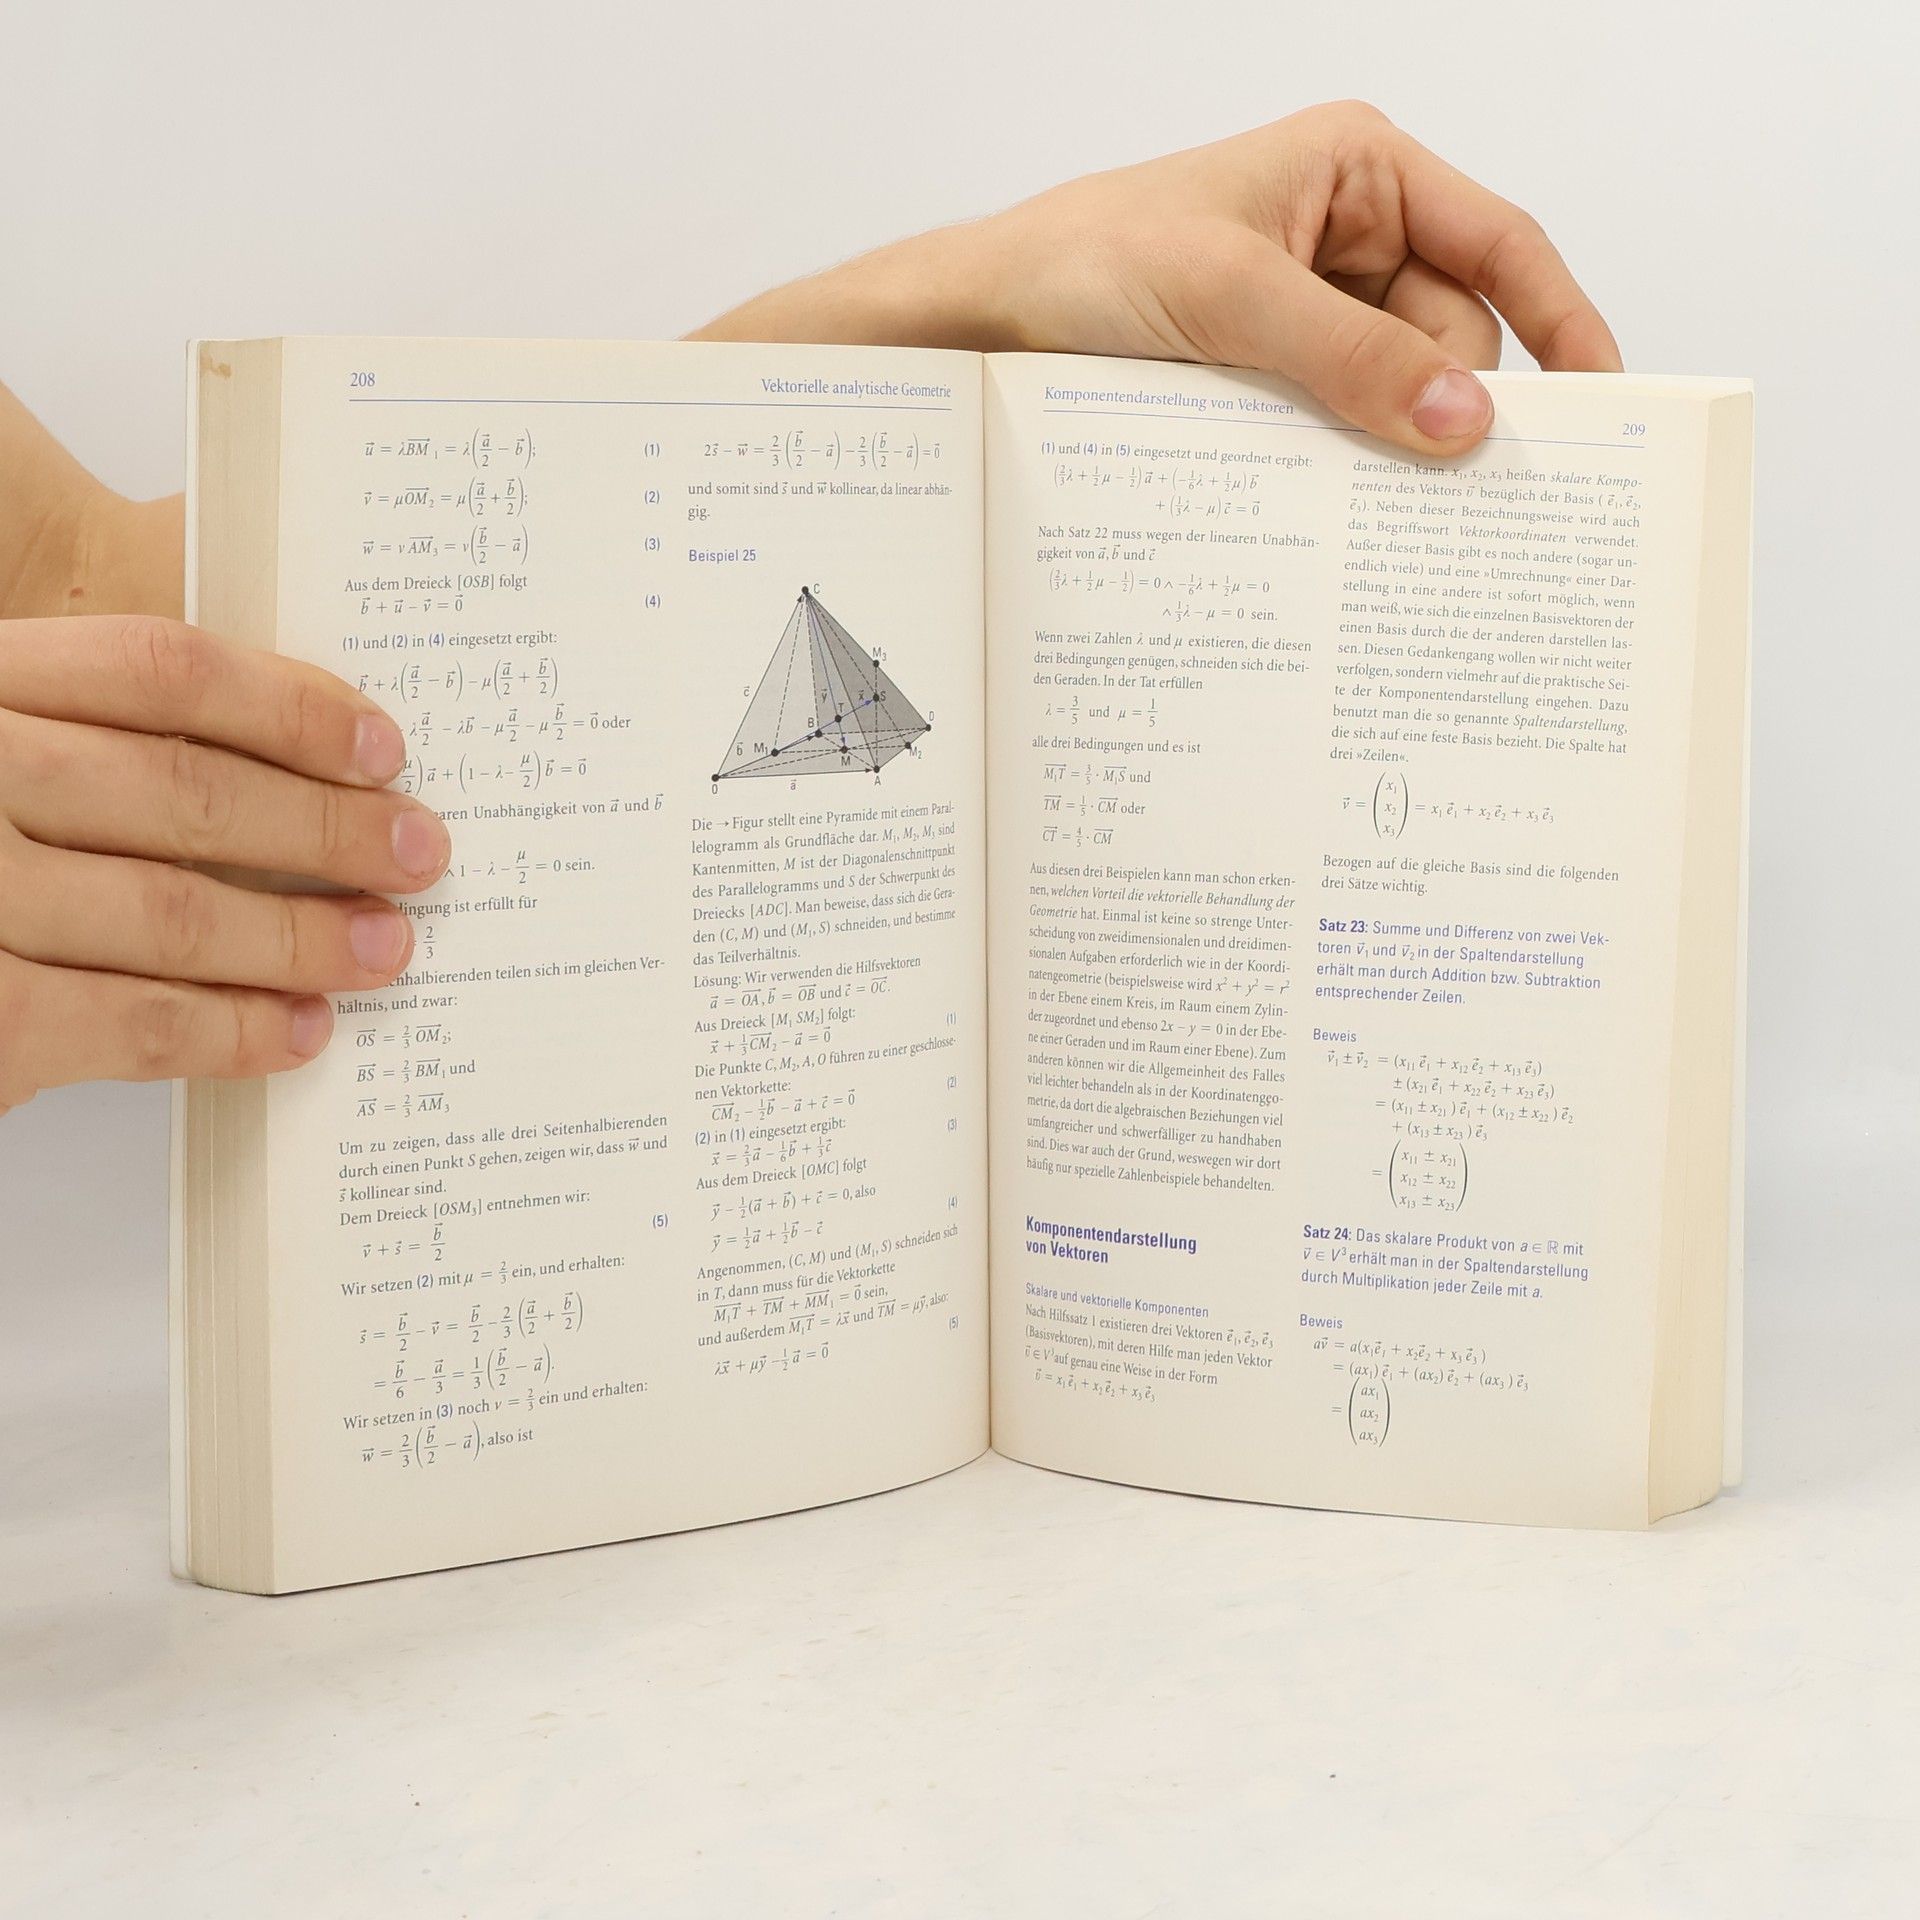 208
Vektorielle analytische Geometrie
u⃗ = λBM⃗₁ = λ(a⃗/2 − b⃗); (1)
v⃗ = μOM⃗₂ = μ(a⃗/2 + b⃗/2); (2)
w⃗ = νAM⃗₃ = ν(b⃗/2 − a⃗) (3)
Aus dem Dreieck [OSB] folgt
b⃗ + u⃗ − v⃗ = 0⃗ (4)
(1) und (2) in (4) eingesetzt ergibt:
b⃗ + λ(a⃗/2 − b⃗) − μ(a⃗/2 + b⃗/2)
λ a⃗/2 − λb⃗ − μ a⃗/2 − μ b⃗/2 = 0⃗ oder
μ/2) a⃗ + (1 − λ − μ/2) b⃗ = 0⃗
Unabhängigkeit von a⃗ und b⃗
∧ 1 − λ − μ/2 = 0 sein.
ist erfüllt für
2/3
teilen sich im gleichen Ver-
hältnis, und zwar:
OS⃗ = 2/3 OM⃗₂;
BS⃗ = 2/3 BM⃗₁ und
AS⃗ = 2/3 AM⃗₃
Um zu zeigen, dass alle drei Seitenhalbierenden
durch einen Punkt S gehen, zeigen wir, dass w⃗ und
s⃗ kollinear sind.
Dem Dreieck [OSM₃] entnehmen wir:
v⃗ + s⃗ = b⃗/2 (5)
Wir setzen (2) mit μ = 2/3 ein, und erhalten:
s⃗ = b⃗/2 − v⃗ = b⃗/2 − 2/3 (a⃗/2 + b⃗/2)
= b⃗/6 − a⃗/3 = 1/3 (b⃗/2 − a⃗).
Wir setzen in (3) noch ν = 2/3 ein und erhalten:
w⃗ = 2/3 (b⃗/2 − a⃗), also ist
2s⃗ − w⃗ = 2/3 (b⃗/2 − a⃗) − 2/3 (b⃗/2 − a⃗) = 0⃗
und somit sind s⃗ und w⃗ kollinear, da linear abhän-
gig.
Beispiel 25
C
M₃
c⃗
y⃗ x⃗ S
T
B D
b⃗ M₁
M M₂
O a⃗ A
Die → Figur stellt eine Pyramide mit einem Paral-
lelogramm als Grundfläche dar. M₁, M₂, M₃ sind
Kantenmitten, M ist der Diagonalenschnittpunkt
des Parallelogramms und S der Schwerpunkt des
Dreiecks [ADC]. Man beweise, dass sich die Gera-
den (C, M) und (M₁, S) schneiden, und bestimme
das Teilverhältnis.
Lösung: Wir verwenden die Hilfsvektoren
a⃗ = OA⃗, b⃗ = OB⃗ und c⃗ = OC⃗.
Aus Dreieck [M₁ SM₂] folgt:
x⃗ + 1/3 CM⃗₂ − a⃗ = 0⃗ (1)
Die Punkte C, M₂, A, O führen zu einer geschlosse-
nen Vektorkette:
CM⃗₂ − 1/2 b⃗ − a⃗ + c⃗ = 0⃗ (2)
(2) in (1) eingesetzt ergibt:
x⃗ = 2/3 a⃗ − 1/6 b⃗ + 1/3 c⃗ (3)
Aus dem Dreieck [OMC] folgt
y⃗ − 1/2 (a⃗ + b⃗) + c⃗ = 0, also
y⃗ = 1/2 a⃗ + 1/2 b⃗ − c⃗ (4)
Angenommen, (C, M) und (M₁, S) schneiden sich
in T, dann muss für die Vektorkette
M₁T⃗ + TM⃗ + MM⃗₁ = 0⃗ sein,
und außerdem M₁T⃗ = λx⃗ und TM⃗ = μy⃗, also:
λx⃗ + μy⃗ − 1/2 a⃗ = 0⃗ (5)
Komponentendarstellung von Vektoren
209
(1) und (4) in (5) eingesetzt und geordnet ergibt:
(2/3 λ + 1/2 μ − 1/2) a⃗ + (−1/6 λ + 1/2 μ) b⃗
+ (1/3 λ − μ) c⃗ = 0⃗
Nach Satz 22 muss wegen der linearen Unabhän-
gigkeit von a⃗, b⃗ und c⃗
(2/3 λ + 1/2 μ − 1/2) = 0 ∧ −1/6 λ + 1/2 μ = 0
∧ 1/3 λ − μ = 0 sein.
Wenn zwei Zahlen λ und μ existieren, die diesen
drei Bedingungen genügen, schneiden sich die bei-
den Geraden. In der Tat erfüllen
λ = 3/5 und μ = 1/5
alle drei Bedingungen und es ist
M₁T⃗ = 3/5 · M₁S⃗ und
TM⃗ = 1/5 · CM⃗ oder
CT⃗ = 4/5 · CM⃗
Aus diesen drei Beispielen kann man schon erken-
nen, welchen Vorteil die vektorielle Behandlung der
Geometrie hat. Einmal ist keine so strenge Unter-
scheidung von zweidimensionalen und dreidimen-
sionalen Aufgaben erforderlich wie in der Koordi-
natengeometrie (beispielsweise wird x² + y² = r²
in der Ebene einem Kreis, im Raum einem Zylin-
der zugeordnet und ebenso 2x − y = 0 in der Ebe-
ne einer Geraden und im Raum einer Ebene). Zum
anderen können wir die Allgemeinheit des Falles
viel leichter behandeln als in der Koordinatengeo-
metrie, da dort die algebraischen Beziehungen viel
umfangreicher und schwerfälliger zu handhaben
sind. Dies war auch der Grund, weswegen wir dort
häufig nur spezielle Zahlenbeispiele behandelten.
Komponentendarstellung
von Vektoren
Skalare und vektorielle Komponenten
Nach Hilfssatz 1 existieren drei Vektoren e⃗₁, e⃗₂, e⃗₃
(Basisvektoren), mit deren Hilfe man jeden Vektor
v⃗ ∈ V³ auf genau eine Weise in der Form
v⃗ = x₁e⃗₁ + x₂e⃗₂ + x₃e⃗₃
darstellen kann. x₁, x₂, x₃ heißen skalare Kompo-
nenten des Vektors v⃗ bezüglich der Basis (e⃗₁, e⃗₂,
e⃗₃). Neben dieser Bezeichnungsweise wird auch
das Begriffswort Vektorkoordinaten verwendet.
Außer dieser Basis gibt es noch andere (sogar un-
endlich viele) und eine »Umrechnung« einer Dar-
stellung in eine andere ist sofort möglich, wenn
man weiß, wie sich die einzelnen Basisvektoren der
einen Basis durch die der anderen darstellen las-
sen. Diesen Gedankengang wollen wir nicht weiter
verfolgen, sondern vielmehr auf die praktische Sei-
te der Komponentendarstellung eingehen. Dazu
benutzt man die so genannte Spaltendarstellung,
die sich auf eine feste Basis bezieht. Die Spalte hat
drei »Zeilen«.
x₁
v⃗ = ( x₂ ) = x₁ e⃗₁ + x₂ e⃗₂ + x₃ e⃗₃
x₃
Bezogen auf die gleiche Basis sind die folgenden
drei Sätze wichtig.
Satz 23: Summe und Differenz von zwei Vek-
toren v⃗₁ und v⃗₂ in der Spaltendarstellung
erhält man durch Addition bzw. Subtraktion
entsprechender Zeilen.
Beweis
v⃗₁ ± v⃗₂ = (x₁₁ e⃗₁ + x₁₂ e⃗₂ + x₁₃ e⃗₃)
± (x₂₁ e⃗₁ + x₂₂ e⃗₂ + x₂₃ e⃗₃)
= (x₁₁ ± x₂₁) e⃗₁ + (x₁₂ ± x₂₂) e⃗₂
+ (x₁₃ ± x₂₃) e⃗₃
x₁₁ ± x₂₁
= ( x₁₂ ± x₂₂ )
x₁₃ ± x₂₃
Satz 24: Das skalare Produkt von a ∈ ℝ mit
v⃗ ∈ V³ erhält man in der Spaltendarstellung
durch Multiplikation jeder Zeile mit a.
Beweis
av⃗ = a(x₁e⃗₁ + x₂e⃗₂ + x₃e⃗₃)
= (ax₁) e⃗₁ + (ax₂) e⃗₂ + (ax₃) e⃗₃
ax₁
= ( ax₂ )
ax₃